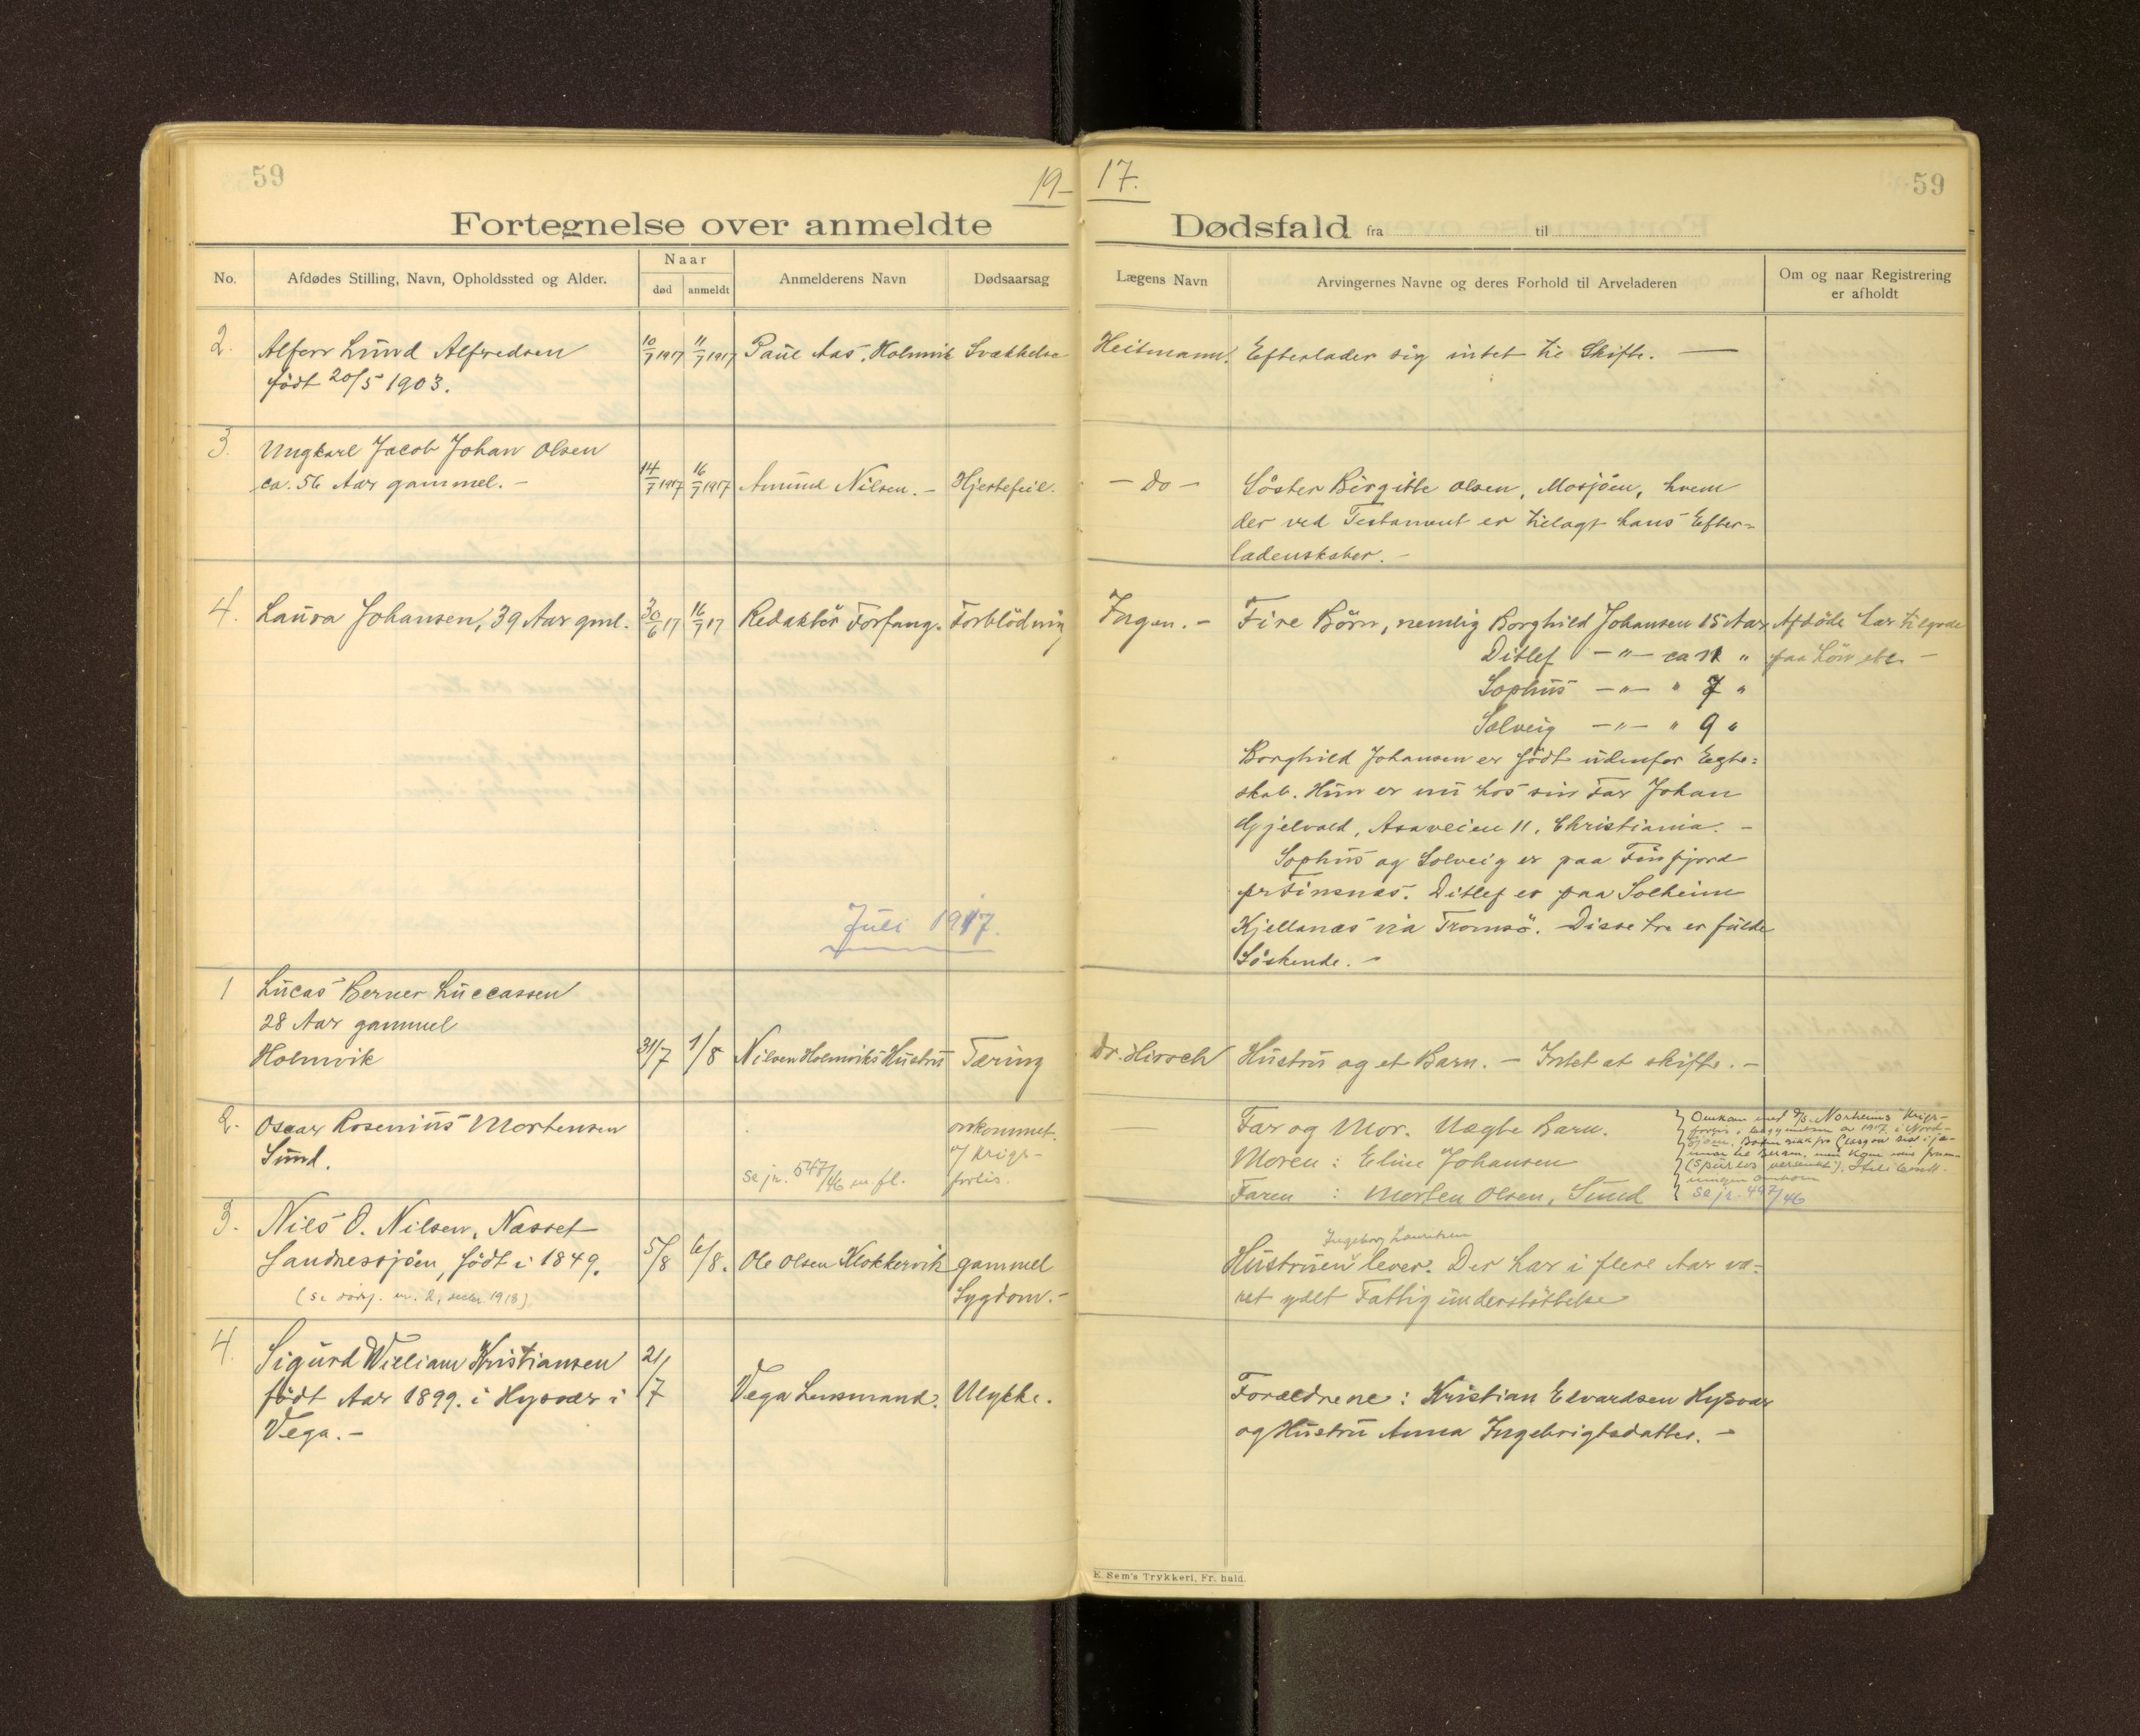 59
19-
17.
59
Fortegnelse over anmeldte
Dødsfald fra til
No.
Afdødes Stilling, Navn, Opholdssted og Alder.
Naar
død
anmeldt
Anmelderens Navn
Dødsaarsag
Lægens Navn
Arvingernes Navne og deres Forhold til Arveladeren
Om og naar Registrering
er afholdt
2. Lund Alfredsen 10/7 1917 11/7 1917 Paul Aas, Holmvik Svækkelse Heitmann. Efterlader sig intet til Skifte. —
født 20/5 1903.
3. Ungkarl Jacob Johan Olsen
ca. 56 Aar gammel. - 14/7 1917 16/7 1917 Amund Nilsen. - Hjertefeil. - Do - Søster Birgitte Olsen, Mosjøen, hvem
der ved Testament er tillagt hans Efter=
ladenskaber. -
4. Laura Johansen, 39 Aar gml. 30/6 17 16/7 17 Redaktør Forfang. Forblødning Ingen. - Fire Børn, nemlig Borghild Johansen 15 Aar Afdøde har tilgode
Ditlef -"- ca 11 " paa Løn etc -
Sophus -"- " 7 "
Solveig -"- " 9 "
Borghild Johansen er født udenfor Egte=
skab. Hun er nu hos sin Far Johan
Gjelvold, Asaveien 11, Christiania. -
Sophus og Solveig er paa Finfjord
pr Finsnæs. Ditlef er paa Solheim
Kjellanæs via Tromsø. Disse tre er fulde
Søskende. -
Juli 1917.
1 Lucas Berner Luccassen
28 Aar gammel
Holmvik 31/7 1/8 Nilsen Holmviks Hustru Tæring Dr. Hirsch Hustru og et Barn. - Intet at skifte. -
2. Oscar Rosenius Mortensen omkommet — Far og Mor. Uægte Barn.
Sund. v/ krigs- Moren: Eline Johansen
se jr. 547/46 m. fl. forlis. Faren: Morten Olsen, Sund
Omkom med D/S. Norheims krigs-
forlis i 1917 i Nord-
sjøen. fra Glasgow sist i ja-
nuar til Bergen, men kom ikke frem
se jr. 497/46
3. Nils O. Nilsen, Næsset
Sandnessjøen, født i 1849. 5/8 6/8. Ole Olsen Klokkervik gammel
Sygdom. -
(se nr. 2, 1918)
Ingeborg Lauritsen
Hustruen lever. Der har i flere Aar væ=
ret ydet Fattigunderstøttelse
4. Sigurd William Kristiansen 21/7
født Aar 1899. i Hysvær i Vega Lensmand. Ulykke. Forældrene: Kristian Edvardsen Hysvær
Vega. - og Hustru Anna Ingebrigtsdatter. -
E. Sem's Trykkeri, Fr. hald.